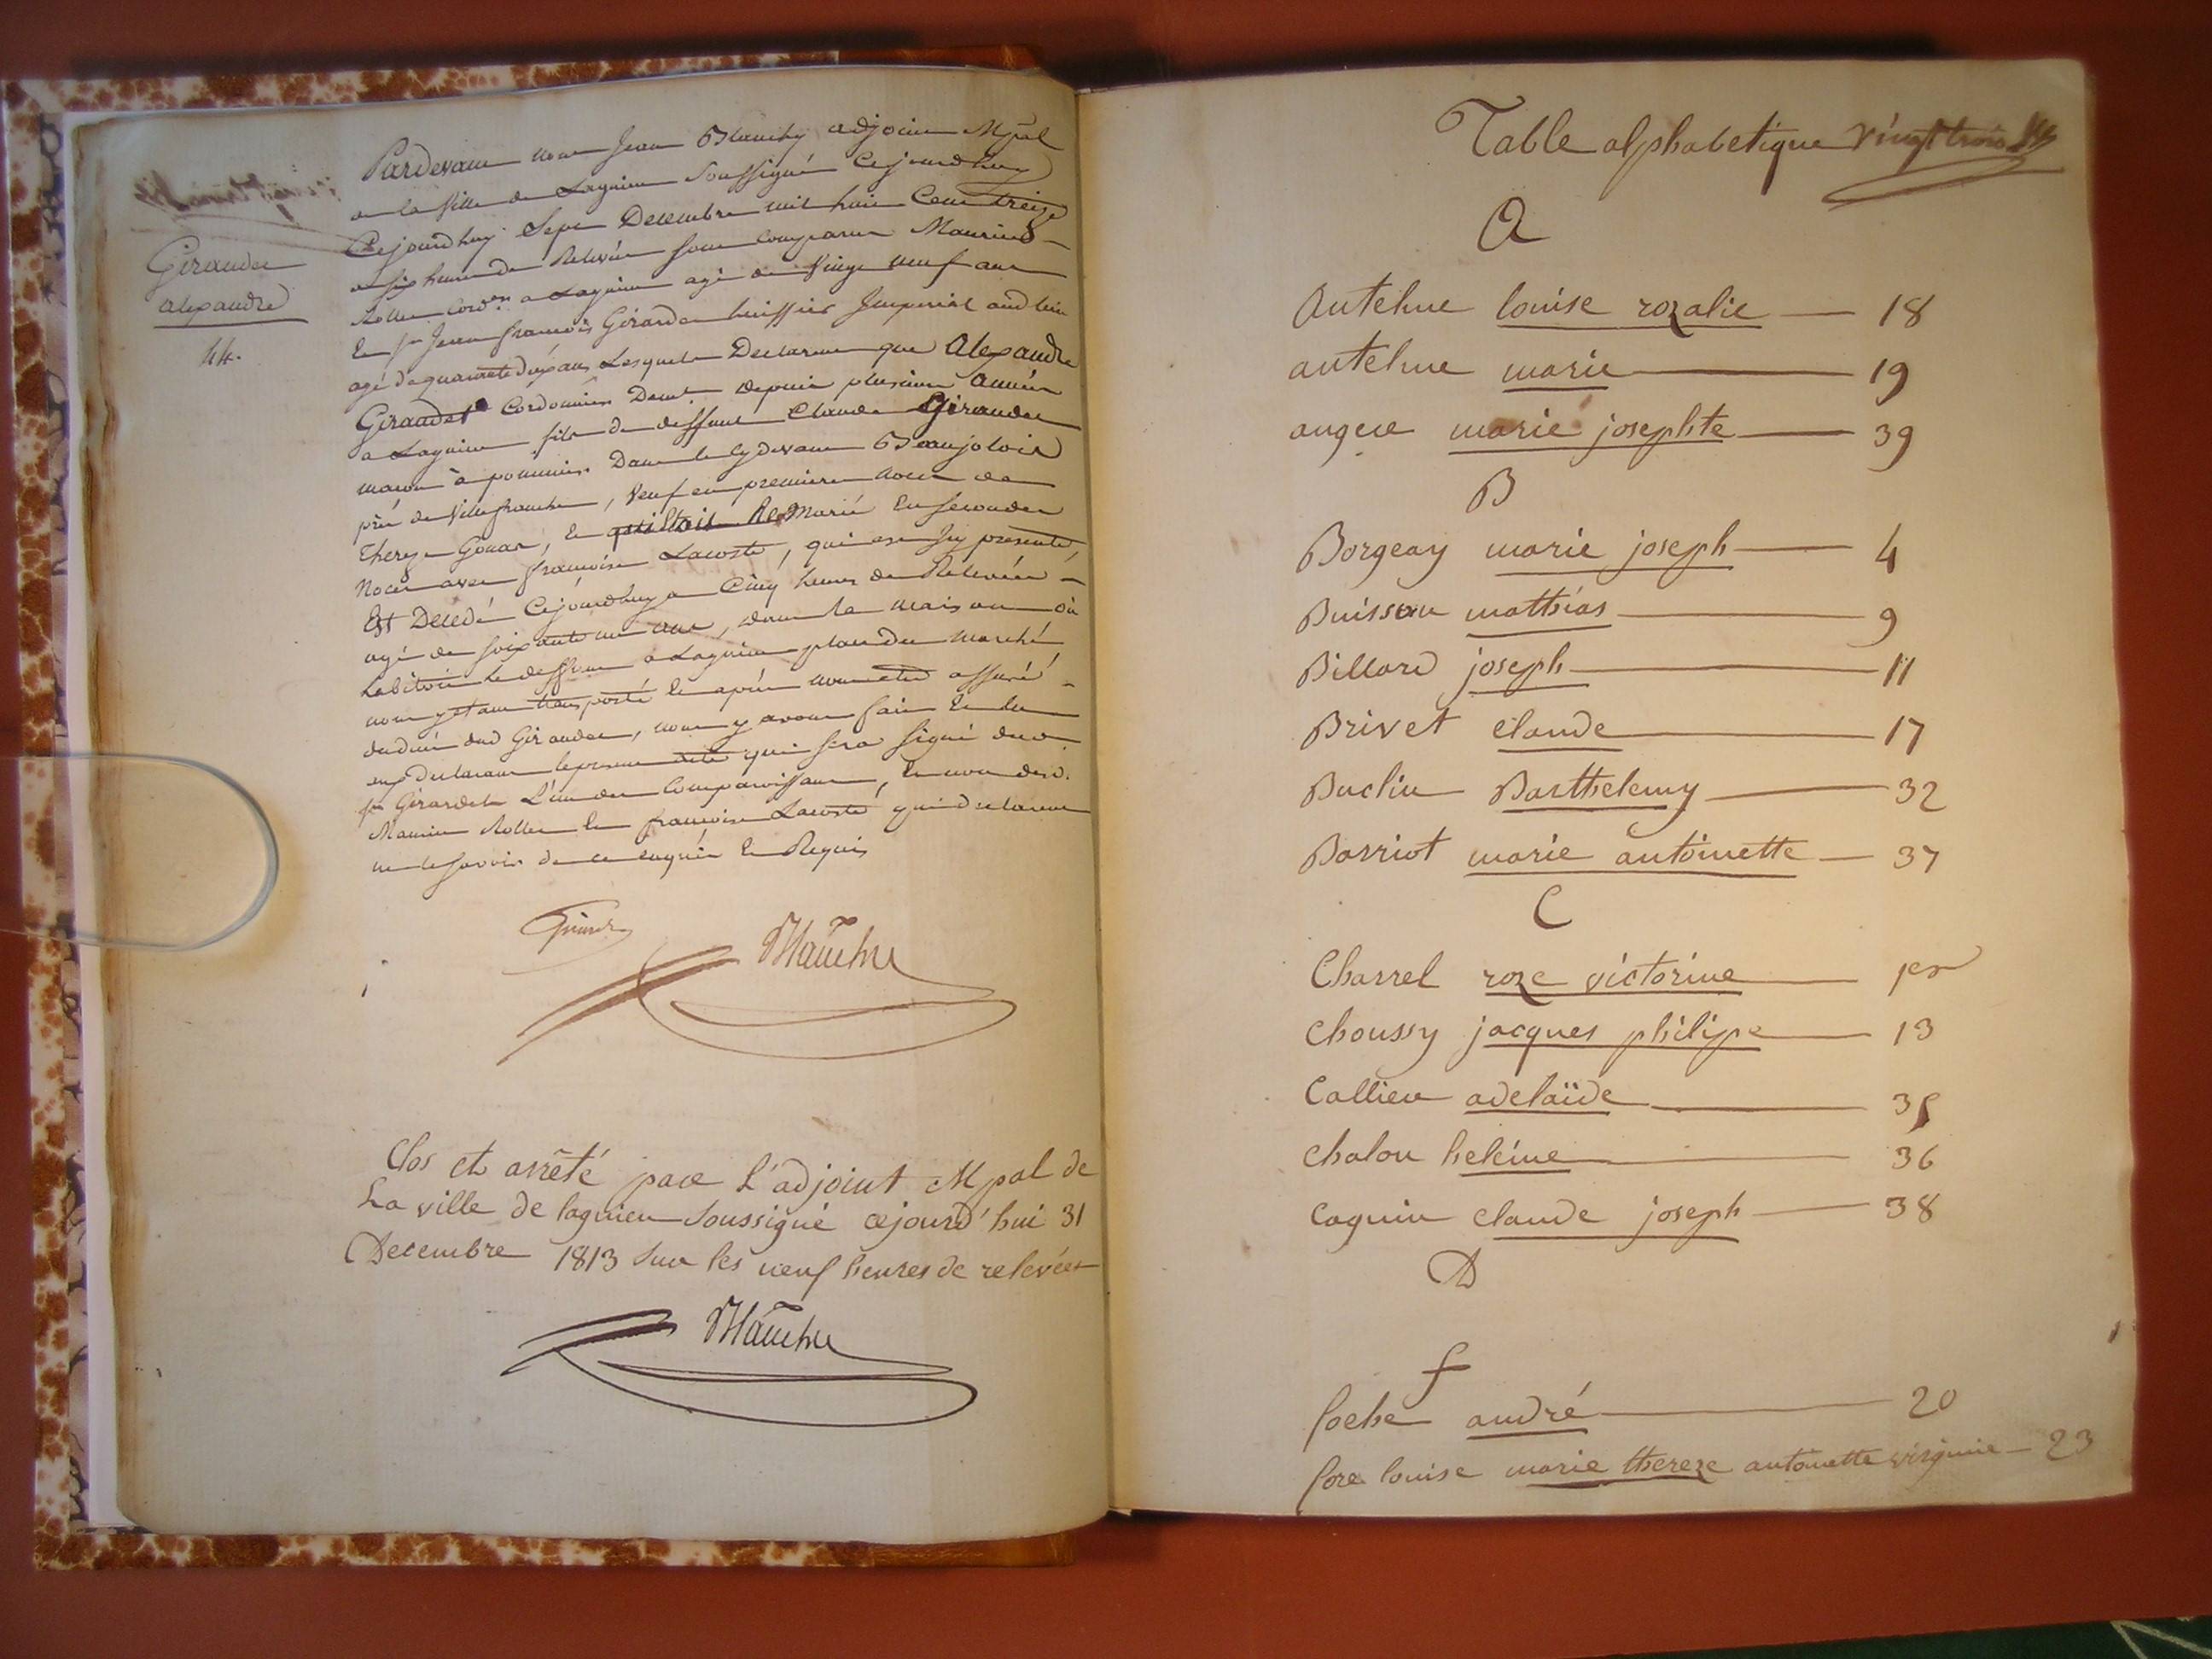 Giraudet
alexandre
44.
Pardevant nous Jean Blanchy adjoint Mpal
de la Ville de Lagnieu Soussigné Cejourdhuy
Cejourdhuy Sept Decembre mil huit Cent treize
a six heures de Relevée sont comparus Maurice
Rollet Cord.er a Lagnieu agé de Vingt neuf ans
Et Sr Jean françois Girardet huissier Imperial aud lieu
agé de quarante dix ans Lesquels Declarent que Alexandre
Giraudet Cordonnier Demt depuis plusieurs années
a Lagnieu fils de deffunt Claude Giraudet
macon à pommier Dans le cydevant Beaujolois
près de Villefranche, Veuf en premiere noces de
Thereze Gonar, Et Remarié En Secondes
Noces avec françoise Lacoste, qui est Icy presente,
Est Decedé Cejourdhuy a Cinq heures de Relevée
agé de soixante un ans, dans la maison où
habitoit le deffunt a Lagnieu place du marché
nous y etant transporté Et après nous etre assuré
du decés dud Giraudet, nous y avons fait Et lu
aux declarans le present acte qui sera signé dud.
sr Girardet L'un des Comparoissans, Et non desd.
Maurice Rollet Et françoise Lacoste qui declarent
ne le savoir de ce enquis Et Requis
Girardet
Blanchy
Clos et arrêté par L'adjoint Mpal de
La ville de lagnieu Soussigné cejourd'hui 31
Decembre 1813 sur les neuf heures de relevées
Blanchy
Table alphabetique Vingt trois
A
Antelme louise rozalie — 18
antelme marie — 19
auger marie josephte — 39
B
Borgeay marie joseph — 4
Buisson mathias — 9
Billard joseph — 11
Brivet claude — 17
Buclin Barthelemy — 32
Barriot marie antoinette — 37
C
Charrel roze victorine — per
Choussy jacques philipe — 13
Callieu adelaïde — 35
chalon heléine — 36
Caguin claude joseph — 38
D
f
foche andré — 20
fore louise marie thereze antoinette virginie — 23